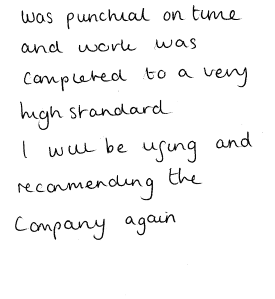 was punctual on time
and work was
completed to a very
high standard
I will be using and
recommending the
Company again